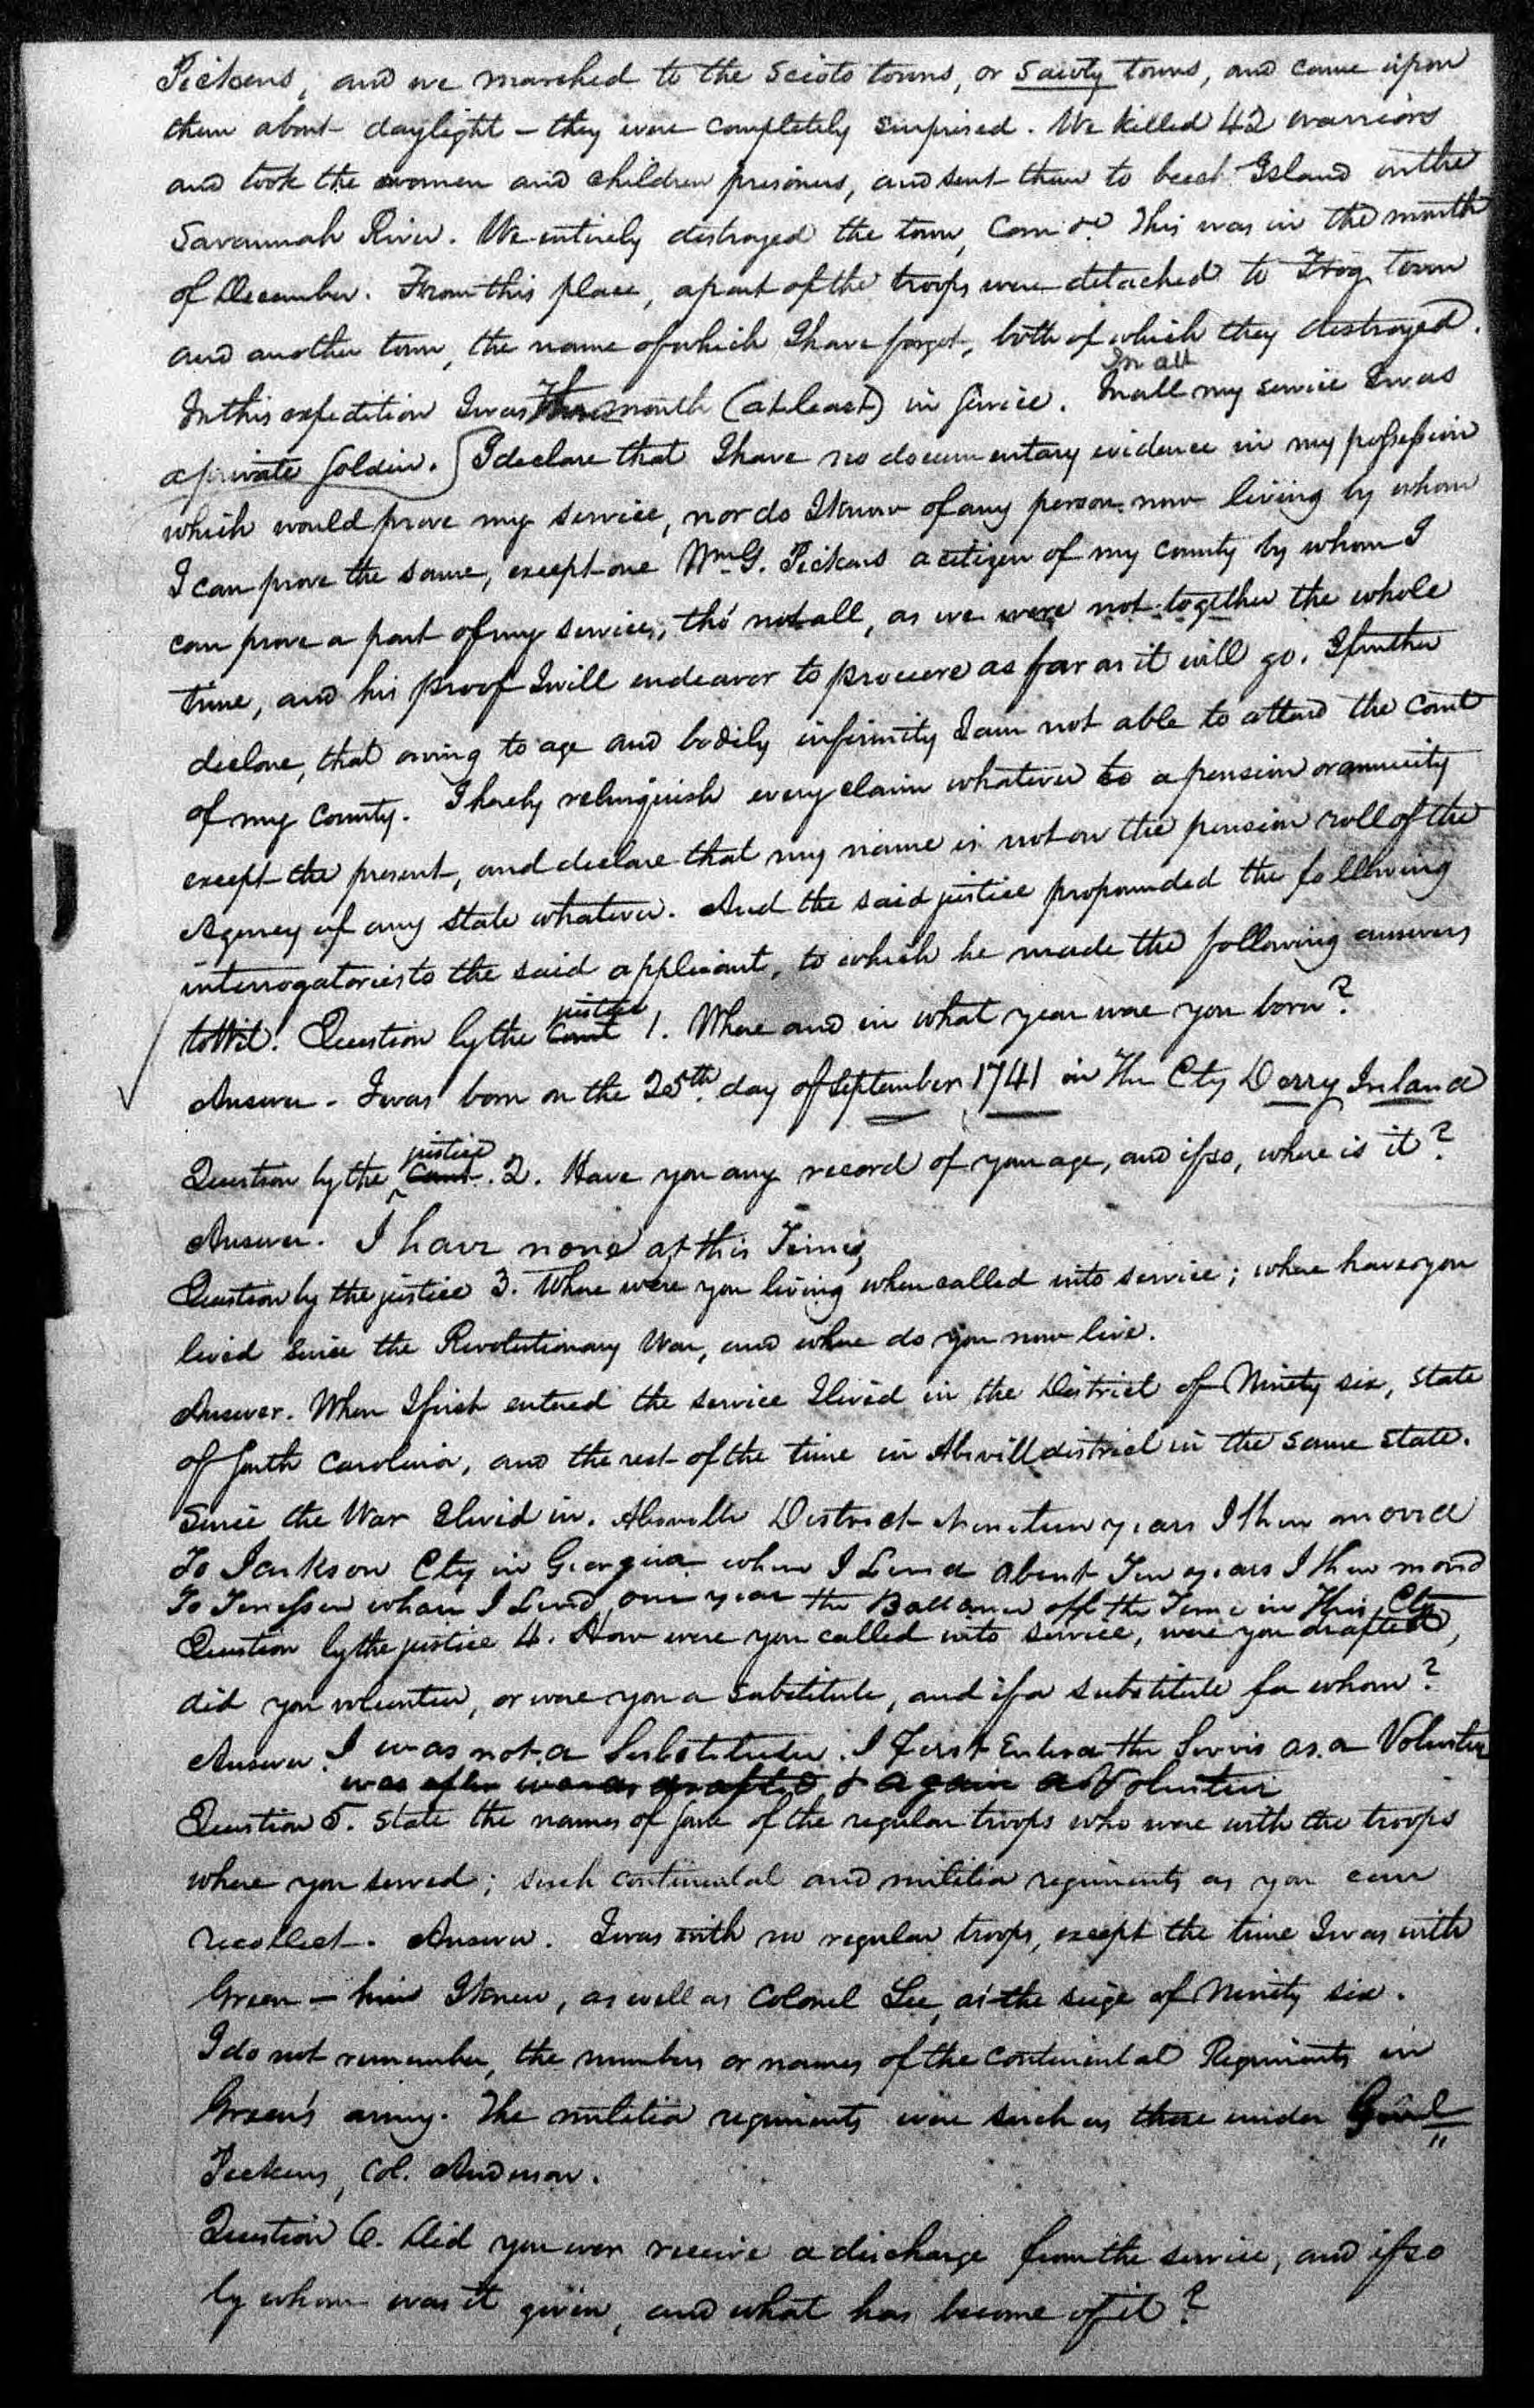 Pickens, and we marched to the Scioto towns, or Saioty towns, and came upon
them about daylight – they were completely surprised. We killed 42 warriors
and took the women and children prisoners, and sent them to beech Island on the
Savannah River. We entirely destroyed the town, Corn &c. This was in the month
of December. From this place, a part of the troops were detached to Frog town
and another town, the name of which I have forgot, both of which they destroyed.
In all
In this expedition I was Three month (at least) in service. In all my service I was
a private soldier. I declare that I have no documentary evidence in my possession
which would prove my service, nor do I know of any person now living by whom
I can prove the same, except one Wm G. Pickens a citizen of my county by whom I
can prove a part of my services, tho' not all, as we were not together the whole
time, and his proof I will endeavor to procure as far as it will go. I further
declare, that owing to age and bodily infirmity I am not able to attend the court
of my county. I hereby relinquish every claim whatever to a pension or annuity
except the present, and declare that my name is not on the pension roll of the
Agency of any state whatever. And the said justice propounded the following
interrogatories to the said applicant, to which he made the following answers
justice
towit: Question by the Court 1. Where and in what year were you born?
Answer – I was born on the 25th day of September 1741 in The Cty Derry Ireland
justice
Question by the Court. 2. Have you any record of your age, and if so, where is it?
Answer. I have none at this Time
Question by the justice 3. Where were you living when called into service; where have you
lived since the Revolutionary War, and where do you now live.
Answer. When I first entered the service I lived in the District of Ninety six, state
of South Carolina, and the rest of the time in Abvill district in the same state.
Since the War I livid in. District years I then movd
To Jackson Cty in Georgia whar I Livd about Ten years I then movd
To Tenessee whare I Livd one year the Ballance off the Time in This Cty
Question by the justice 4. How were you called into service, were you drafted,
did you volunteer, or were you a substitute, and if a substitute for whom?
Answer. I was not a Substitute. I First Enterd the Servis as a Volunteer
was after drafted & again a Volunteer
Question 5. State the names of some of the regular troops who were with the troops
where you served; such continental and militia regiments as you can
recollect. Answer. I was with no regular troops, except the time I was with
Green – him I knew, as well as Colonel Lee, at the seige of Ninety six.
I do not remember, the numbers or names of the Continental Regiments in
Green's army. The militia regiments were such as those under Genl
Pickens, Col. Anderson.
Question 6. Did you ever receive a discharge from the service, and if so
by whom was it given, and what has become of it?